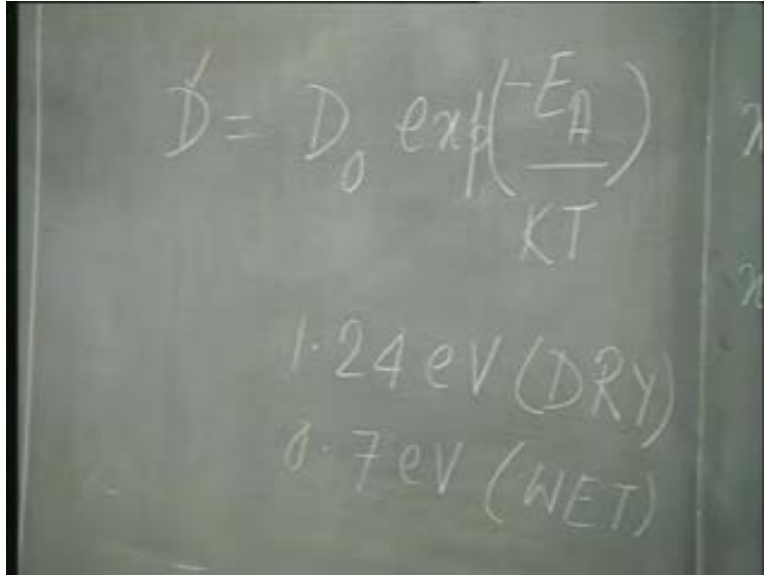 D = D₀ exp(-E_A/KT)
1.24 eV (DRY)
0.7 eV (WET)